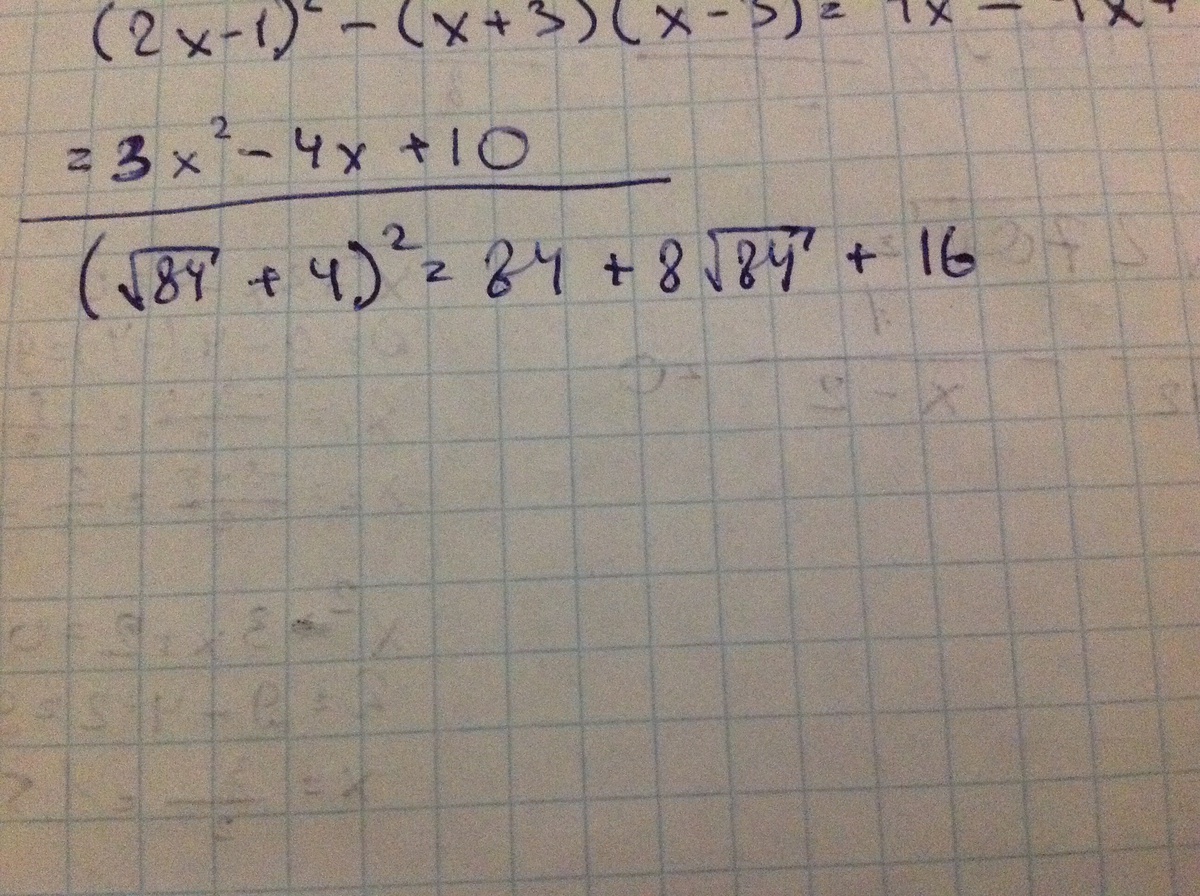 (2x-1)² - (x+3)(x-3) = 4x - 4x +
= 3x² - 4x + 10
(√84 + 4)² = 84 + 8√84 + 16